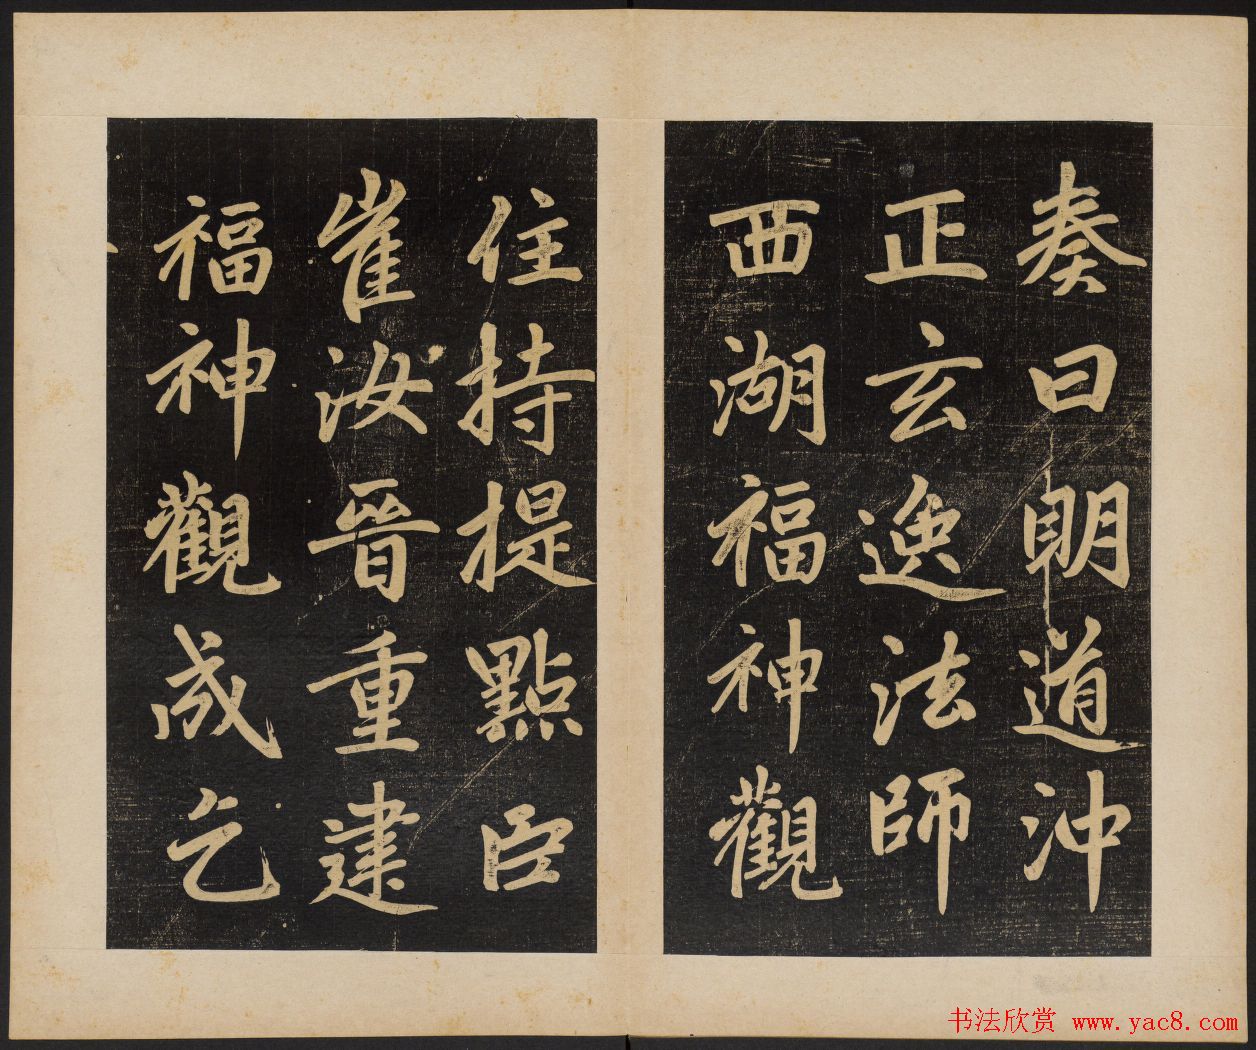 奏曰明道沖
正玄逸法師
西湖福神觀
住持提點臣
崔汝晉重建
福神觀成乞
书法欣赏 www.yac8.com